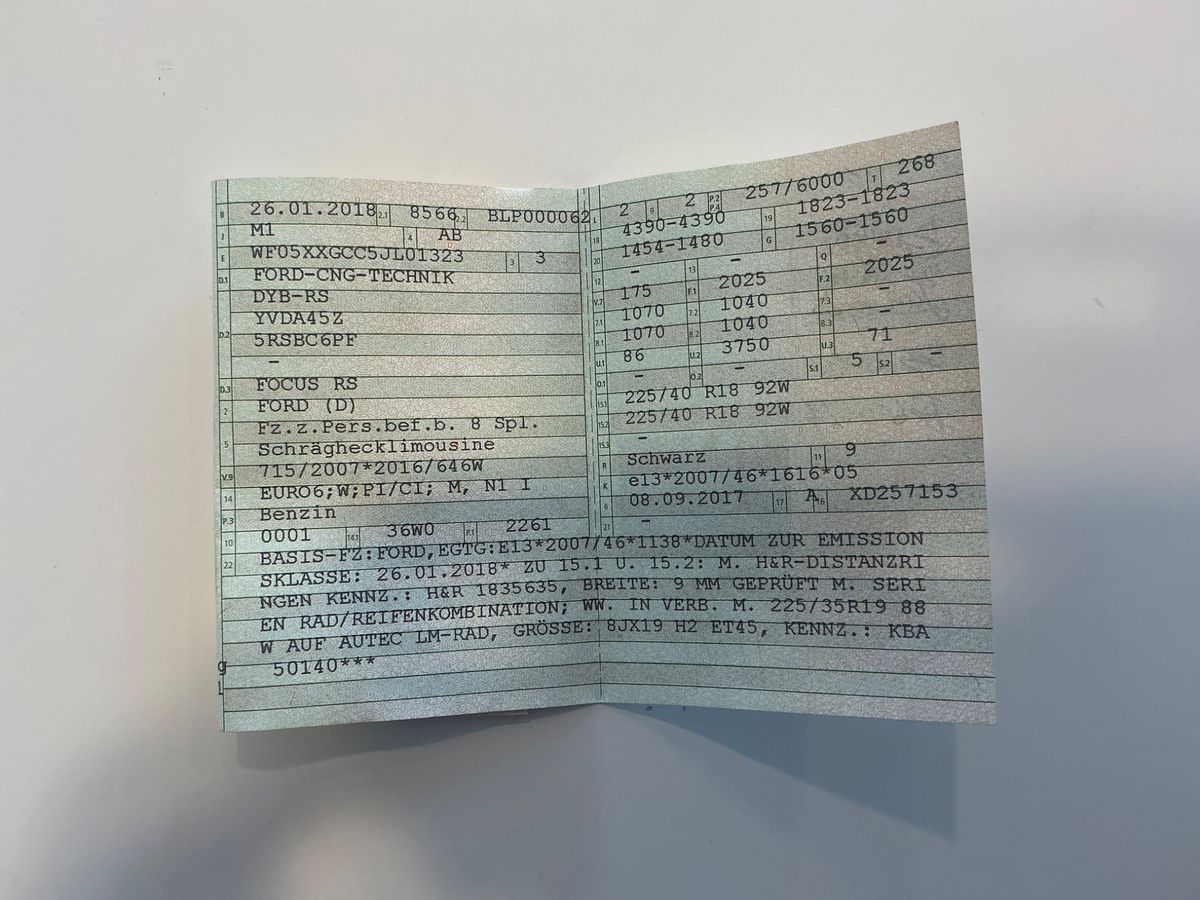 B 26.01.2018 2.1 8566 2.2 BLP000062
J M1 4 AB
E WF05XXGCC5JL01323 3 3
D.1 FORD-CNG-TECHNIK
DYB-RS
YVDA45Z
D.2 5RSBC6PF
–
D.3 FOCUS RS
2 FORD (D)
Fz.z.Pers.bef.b. 8 Spl.
5 Schräghecklimousine
V.9 715/2007*2016/646W
14 EURO6;W;PI/CI; M, N1 I
P.3 Benzin
10 0001 14.1 36W0 P.1 2261
L 2 9 2 P.2 P.4 257/6000 T 268
18 4390-4390 19 1823-1823
20 1454-1480 G 1560-1560
12 – 13 – Q –
V.7 175 F.1 2025 F.2 2025
7.1 1070 7.2 1040 7.3 –
8.1 1070 8.2 1040 8.3 –
U.1 86 U.2 3750 U.3 71
O.1 – O.2 – S.1 5 S.2 –
15.1 225/40 R18 92W
15.2 225/40 R18 92W
15.3 –
R Schwarz 11 9
K e13*2007/46*1616*05
6 08.09.2017 17 A 16 XD257153
21 –
22 BASIS-FZ:FORD,EGTG:E13*2007/46*1138*DATUM ZUR EMISSION
SKLASSE: 26.01.2018* ZU 15.1 U. 15.2: M. H&R-DISTANZRI
NGEN KENNZ.: H&R 1835635, BREITE: 9 MM GEPRÜFT M. SERI
EN RAD/REIFENKOMBINATION; WW. IN VERB. M. 225/35R19 88
W AUF AUTEC LM-RAD, GRÖSSE: 8JX19 H2 ET45, KENNZ.: KBA
50140***